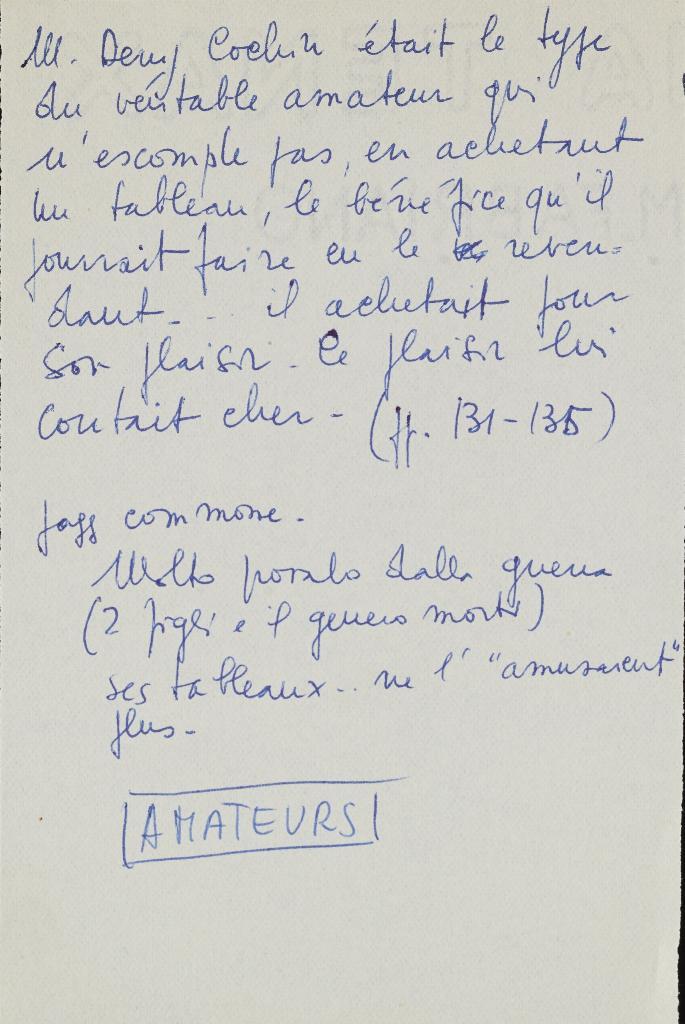 M. Denys Cochin était le type
du véritable amateur qui
n'escompte pas, en achetant
un tableau, le bénéfice qu'il
pourrait faire en le reven-
dant... il achetait pour
son plaisir. Ce plaisir lui
coutait cher - (pp. 131-135)
pass commone.
Molto provato dalla guerra
(2 figli e il genero morti)
ses tableaux.. ne l'"amusaient"
plus -
AMATEURS